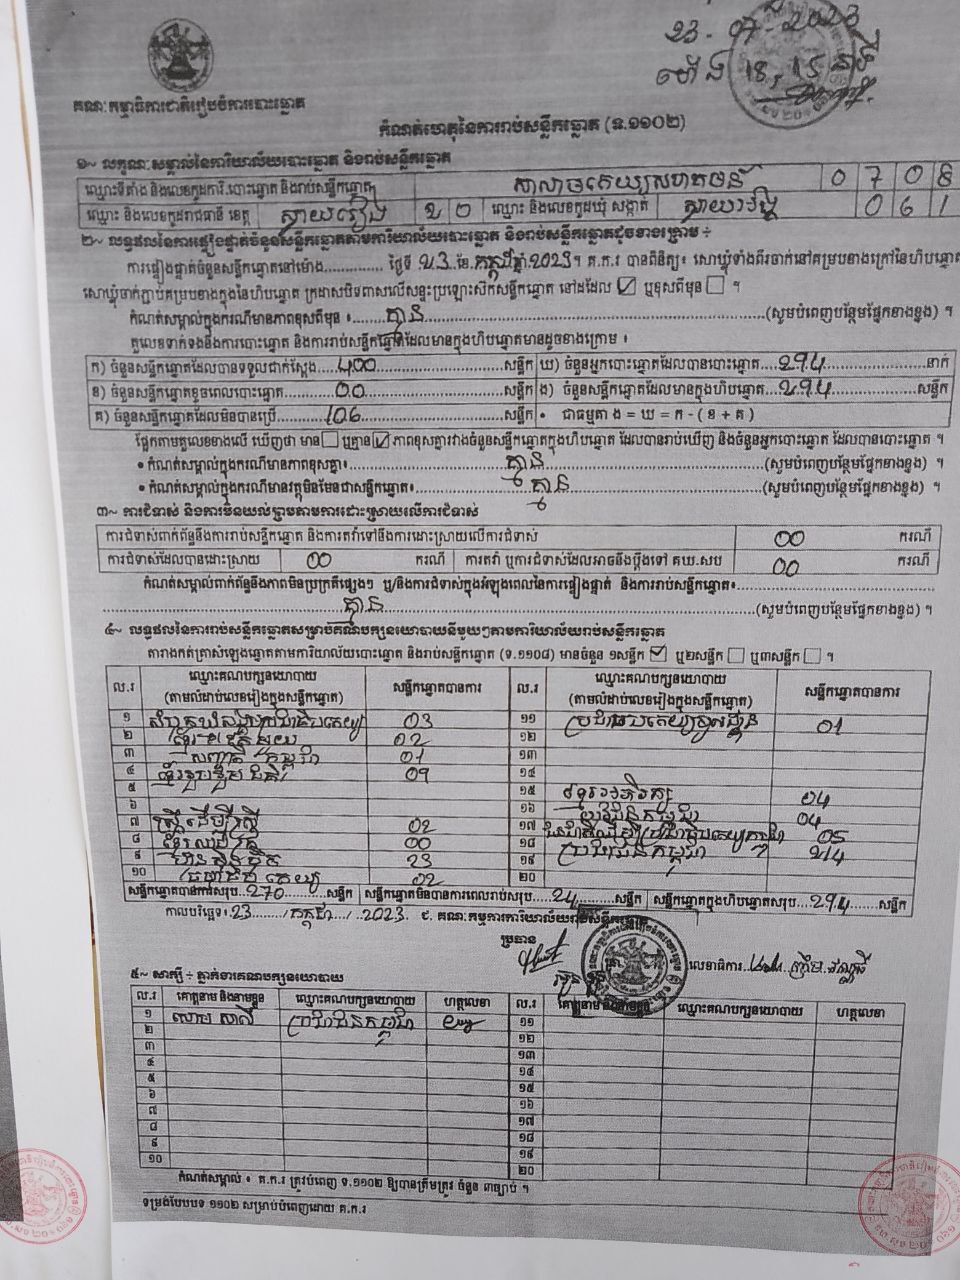 23.07.2023
ម៉ោង 18, 15 នាទី
គណៈកម្មាធិការជាតិរៀបចំការបោះឆ្នោត
កំណត់ហេតុនៃការរាប់សន្លឹកឆ្នោត (ឌ.១១០២)
១~ លក្ខណៈសម្គាល់នៃការិយាល័យបោះឆ្នោត និងរាប់សន្លឹកឆ្នោត
ឈ្មោះទីតាំង និងលេខកូដការិ.បោះឆ្នោត និងរាប់សន្លឹកឆ្នោត 0 7 0 8
ឈ្មោះ និងលេខកូដរាជធានី ខេត្ត ស្វាយរៀង 2 0 ឈ្មោះ និងលេខកូដឃុំ សង្កាត់ 0 6 1
២~ លទ្ធផលនៃការផ្ទៀងផ្ទាត់ចំនួនសន្លឹកឆ្នោតតាមការិយាល័យបោះឆ្នោត និងរាប់សន្លឹកឆ្នោតដូចខាងក្រោម ÷
ការផ្ទៀងផ្ទាត់ចំនួនសន្លឹកឆ្នោតនៅម៉ោង............. ថ្ងៃទី 23.ខែ.កក្កដា.ឆ្នាំ.2023។ គ.ក.រ បានពិនិត្យ៖ សោឃ្លុំទាំងពីរចាក់នៅគម្របខាងក្រៅនៃហិបឆ្នោត
សោឃ្លុំចាក់ភ្ជាប់គម្របខាងក្នុងនៃហិបឆ្នោត ក្រដាសបិទពាសលើសន្ទះប្រឡោះស៊ីកសន្លឹកឆ្នោត នៅដដែល ☑ ឬខុសពីមុន ☐ ។
កំណត់សម្គាល់ក្នុងករណីមានភាពខុសពីមុន ៖......គ្មាន......(សូមបំពេញបន្ថែមផ្នែកខាងខ្នង) ។
តួលេខទាក់ទងនឹងការបោះឆ្នោត និងការរាប់សន្លឹកឆ្នោតដែលមានក្នុងហិបឆ្នោតមានដូចខាងក្រោម ៖
ក) ចំនួនសន្លឹកឆ្នោតដែលបានទទួលជាក់ស្ដែង....400......សន្លឹក ឃ) ចំនួនអ្នកបោះឆ្នោតដែលបានបោះឆ្នោត....294......នាក់
ខ) ចំនួនសន្លឹកឆ្នោតខូចពេលបោះឆ្នោត......00......សន្លឹក ង) ចំនួនសន្លឹកឆ្នោតដែលមានក្នុងហិបឆ្នោត...294......សន្លឹក
គ) ចំនួនសន្លឹកឆ្នោតដែលមិនបានប្រើ......106......សន្លឹក • ជាធម្មតា ង = ឃ = ក - ( ខ + គ )
ផ្អែកតាមតួលេខខាងលើ ឃើញថា មាន ☐ ឬគ្មាន ☑ ភាពខុសគ្នារវាងចំនួនសន្លឹកឆ្នោតក្នុងហិបឆ្នោត ដែលបានរាប់ឃើញ និងចំនួនអ្នកបោះឆ្នោត ដែលបានបោះឆ្នោត ។
• កំណត់សម្គាល់ក្នុងករណីមានភាពខុសគ្នា៖......គ្មាន......(សូមបំពេញបន្ថែមផ្នែកខាងខ្នង) ។
• កំណត់សម្គាល់ក្នុងករណីមានវត្ថុមិនមែនជាសន្លឹកឆ្នោត៖......គ្មាន......(សូមបំពេញបន្ថែមផ្នែកខាងខ្នង) ។
៣~ ការជំទាស់ និងការមិនយល់ព្រមតាមការដោះស្រាយលើការជំទាស់
ការជំទាស់ពាក់ព័ន្ធនឹងការរាប់សន្លឹកឆ្នោត និងការតវ៉ាទៅនឹងការដោះស្រាយលើការជំទាស់ 00 ករណី
ការជំទាស់ដែលបានដោះស្រាយ 00 ករណី ការតវ៉ា ឬការជំទាស់ដែលអាចនឹងប្ដឹងទៅ គឃ.សប 00 ករណី
កំណត់សម្គាល់ពាក់ព័ន្ធនឹងភាពមិនប្រក្រតីផ្សេងៗ ឬ/និងការជំទាស់ក្នុងអំឡុងពេលនៃការផ្ទៀងផ្ទាត់ និងការរាប់សន្លឹកឆ្នោត៖......
......គ្មាន......(សូមបំពេញបន្ថែមផ្នែកខាងខ្នង) ។
៤~ លទ្ធផលនៃការរាប់សន្លឹកឆ្នោតសម្រាប់គណបក្សនយោបាយនីមួយៗតាមការិយាល័យរាប់សន្លឹកឆ្នោត
តារាងកត់ត្រាសំឡេងឆ្នោតតាមការិយាល័យបោះឆ្នោត និងរាប់សន្លឹកឆ្នោត (ទ.១១០៨) មានចំនួន ១សន្លឹក ☑ ឬ២សន្លឹក ☐ ឬ៣សន្លឹក ☐ ។
ល.រ ឈ្មោះគណបក្សនយោបាយ (តាមលំដាប់លេខរៀងក្នុងសន្លឹកឆ្នោត) សន្លឹកឆ្នោតបានការ ល.រ ឈ្មោះគណបក្សនយោបាយ (តាមលំដាប់លេខរៀងក្នុងសន្លឹកឆ្នោត) សន្លឹកឆ្នោតបានការ
១ 03 ១១ 01
២ 02 ១២
៣ 01 ១៣
៤ 09 ១៤
៥ ១៥ 04
៦ ១៦ 04
៧ ស្ត្រីដើម្បីស្ត្រី 02 ១៧ 05
៨ 00 ១៨ ប្រជាជនកម្ពុជា
៩ 23 ១៩
១០ 02 ២០
សន្លឹកឆ្នោតបានការសរុប..270......សន្លឹក សន្លឹកឆ្នោតមិនបានការពេលរាប់សរុប....24....សន្លឹក សន្លឹកឆ្នោតក្នុងហិបឆ្នោតសរុប...294......សន្លឹក
កាលបរិច្ឆេទ៖ 23....../ កក្កដា .../ ..2023. ៩. គណៈកម្មការការិយាល័យរាប់សន្លឹកឆ្នោត
ប្រធាន
លេខាធិការ
៥~ សាក្សី ÷ ភ្នាក់ងារគណបក្សនយោបាយ
ល.រ គោត្តនាម និងនាមខ្លួន ឈ្មោះគណបក្សនយោបាយ ហត្ថលេខា ល.រ គោត្តនាម និងនាមខ្លួន ឈ្មោះគណបក្សនយោបាយ ហត្ថលេខា
១ ប្រជាជនកម្ពុជា ១១
២ ១២
៣ ១៣
៤ ១៤
៥ ១៥
៦ ១៦
៧ ១៧
៨ ១៨
៩ ១៩
១០ ២០
កំណត់សម្គាល់ ៖ គ.ក.រ ត្រូវបំពេញ ទ.១១០២ ឱ្យបានត្រឹមត្រូវ ចំនួន ៣ច្បាប់ ។
ទម្រង់បែបបទ ១១០២ សម្រាប់បំពេញដោយ គ.ក.រ